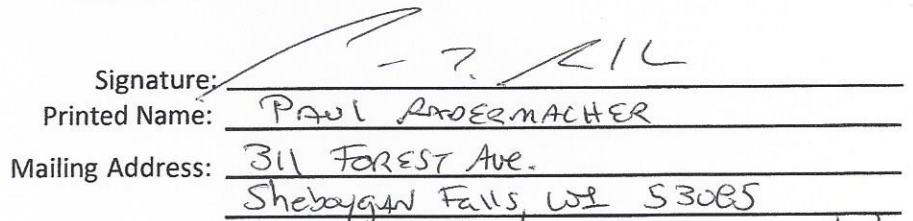 Signature:
Printed Name: PAUL RADERMACHER
Mailing Address: 311 FOREST Ave.
Sheboygan Falls, WI 53085